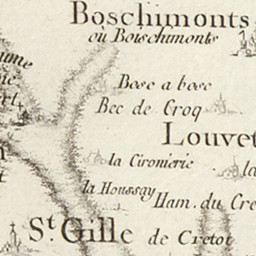 Boschimonts
où Boischimonts
Bosc a bosc
Bec de Croq
Louvet
la Cironierie
la
la Houssay
Ham. du Cre
St. Gille de Cretot